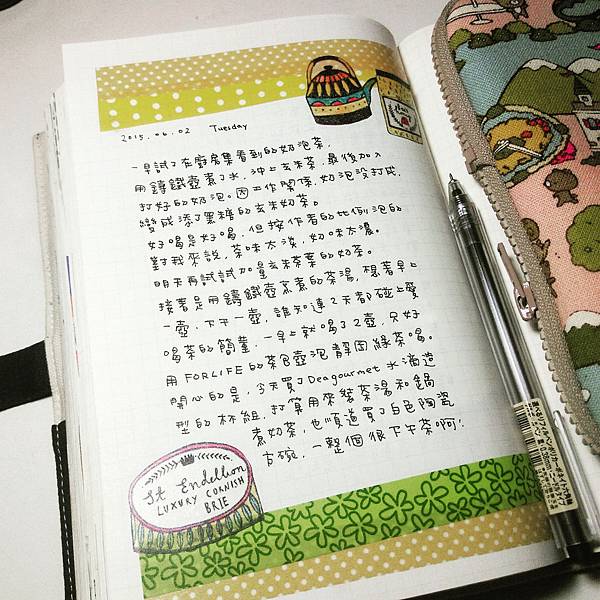 2015.06.02 Tuesday
一早試了在廚房集看到的奶泡茶,
用鑄鐵壺煮了水,沖上玄米茶,最後加入
打好的奶泡。因工作關係,奶泡沒打成,
變成添了黑糖的玄米奶茶。
好喝是好喝,但按作者的比例泡的
對我來說,茶味太淡,奶味太濃。
明天再試試加量玄米茶葉的奶茶。
接著是用鑄鐵壺蒸煮的茶湯,想著早上
一壺,下午一壺,誰知連2天都碰上愛
喝茶的簡董,一早上就喝了2壺,只好
用FORLIFE的茶色壺泡靜岡綠茶喝。
開心的是,今天買了Deagourmet水滴造
型的杯組,打算用來裝茶湯和鍋
煮奶茶,也順道買了白色陶瓷
古碗,一整個很下午茶啊!
St Endellion
LUXURY CORNISH
BRIE